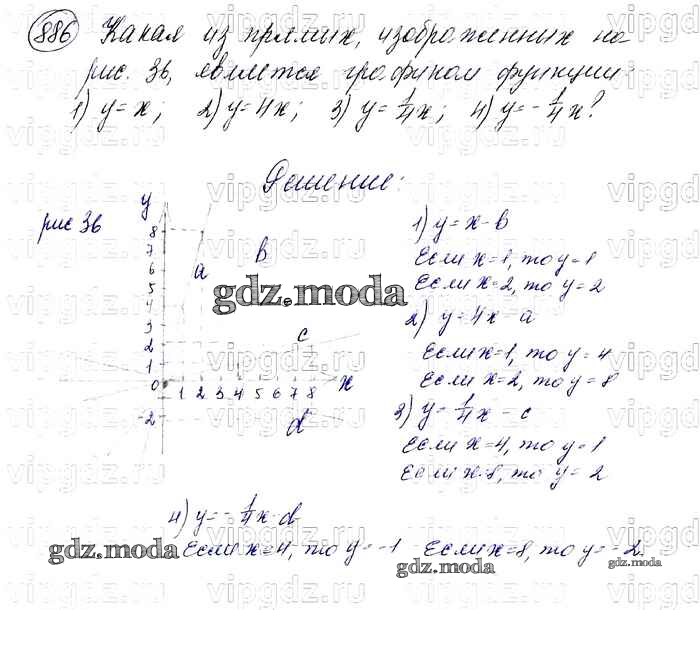 886 Какая из прямых, изображенных на
рис. 36, является графиком функции:
1) y = x; 2) y = 4x; 3) y = 1/4 x; 4) y = - 1/4 x?
Решение:
рис 36
y
8
7
6
5
4
3
2
1
0 1 2 3 4 5 6 7 8 x
-2
a
b
c
d
1) y = x - b
Если x = 1, то y = 1
Если x = 2, то y = 2
2) y = 4x - a
Если x = 1, то y = 4
Если x = 2, то y = 8
3) y = 1/4 x - c
Если x = 4, то y = 1
Если x = 8, то y = 2
4) y = - 1/4 x - d
Если x = 4, то y = -1 Если x = 8, то y = -2
gdz.moda
gdz.moda
gdz.moda
gdz.moda
vipgdz.ru